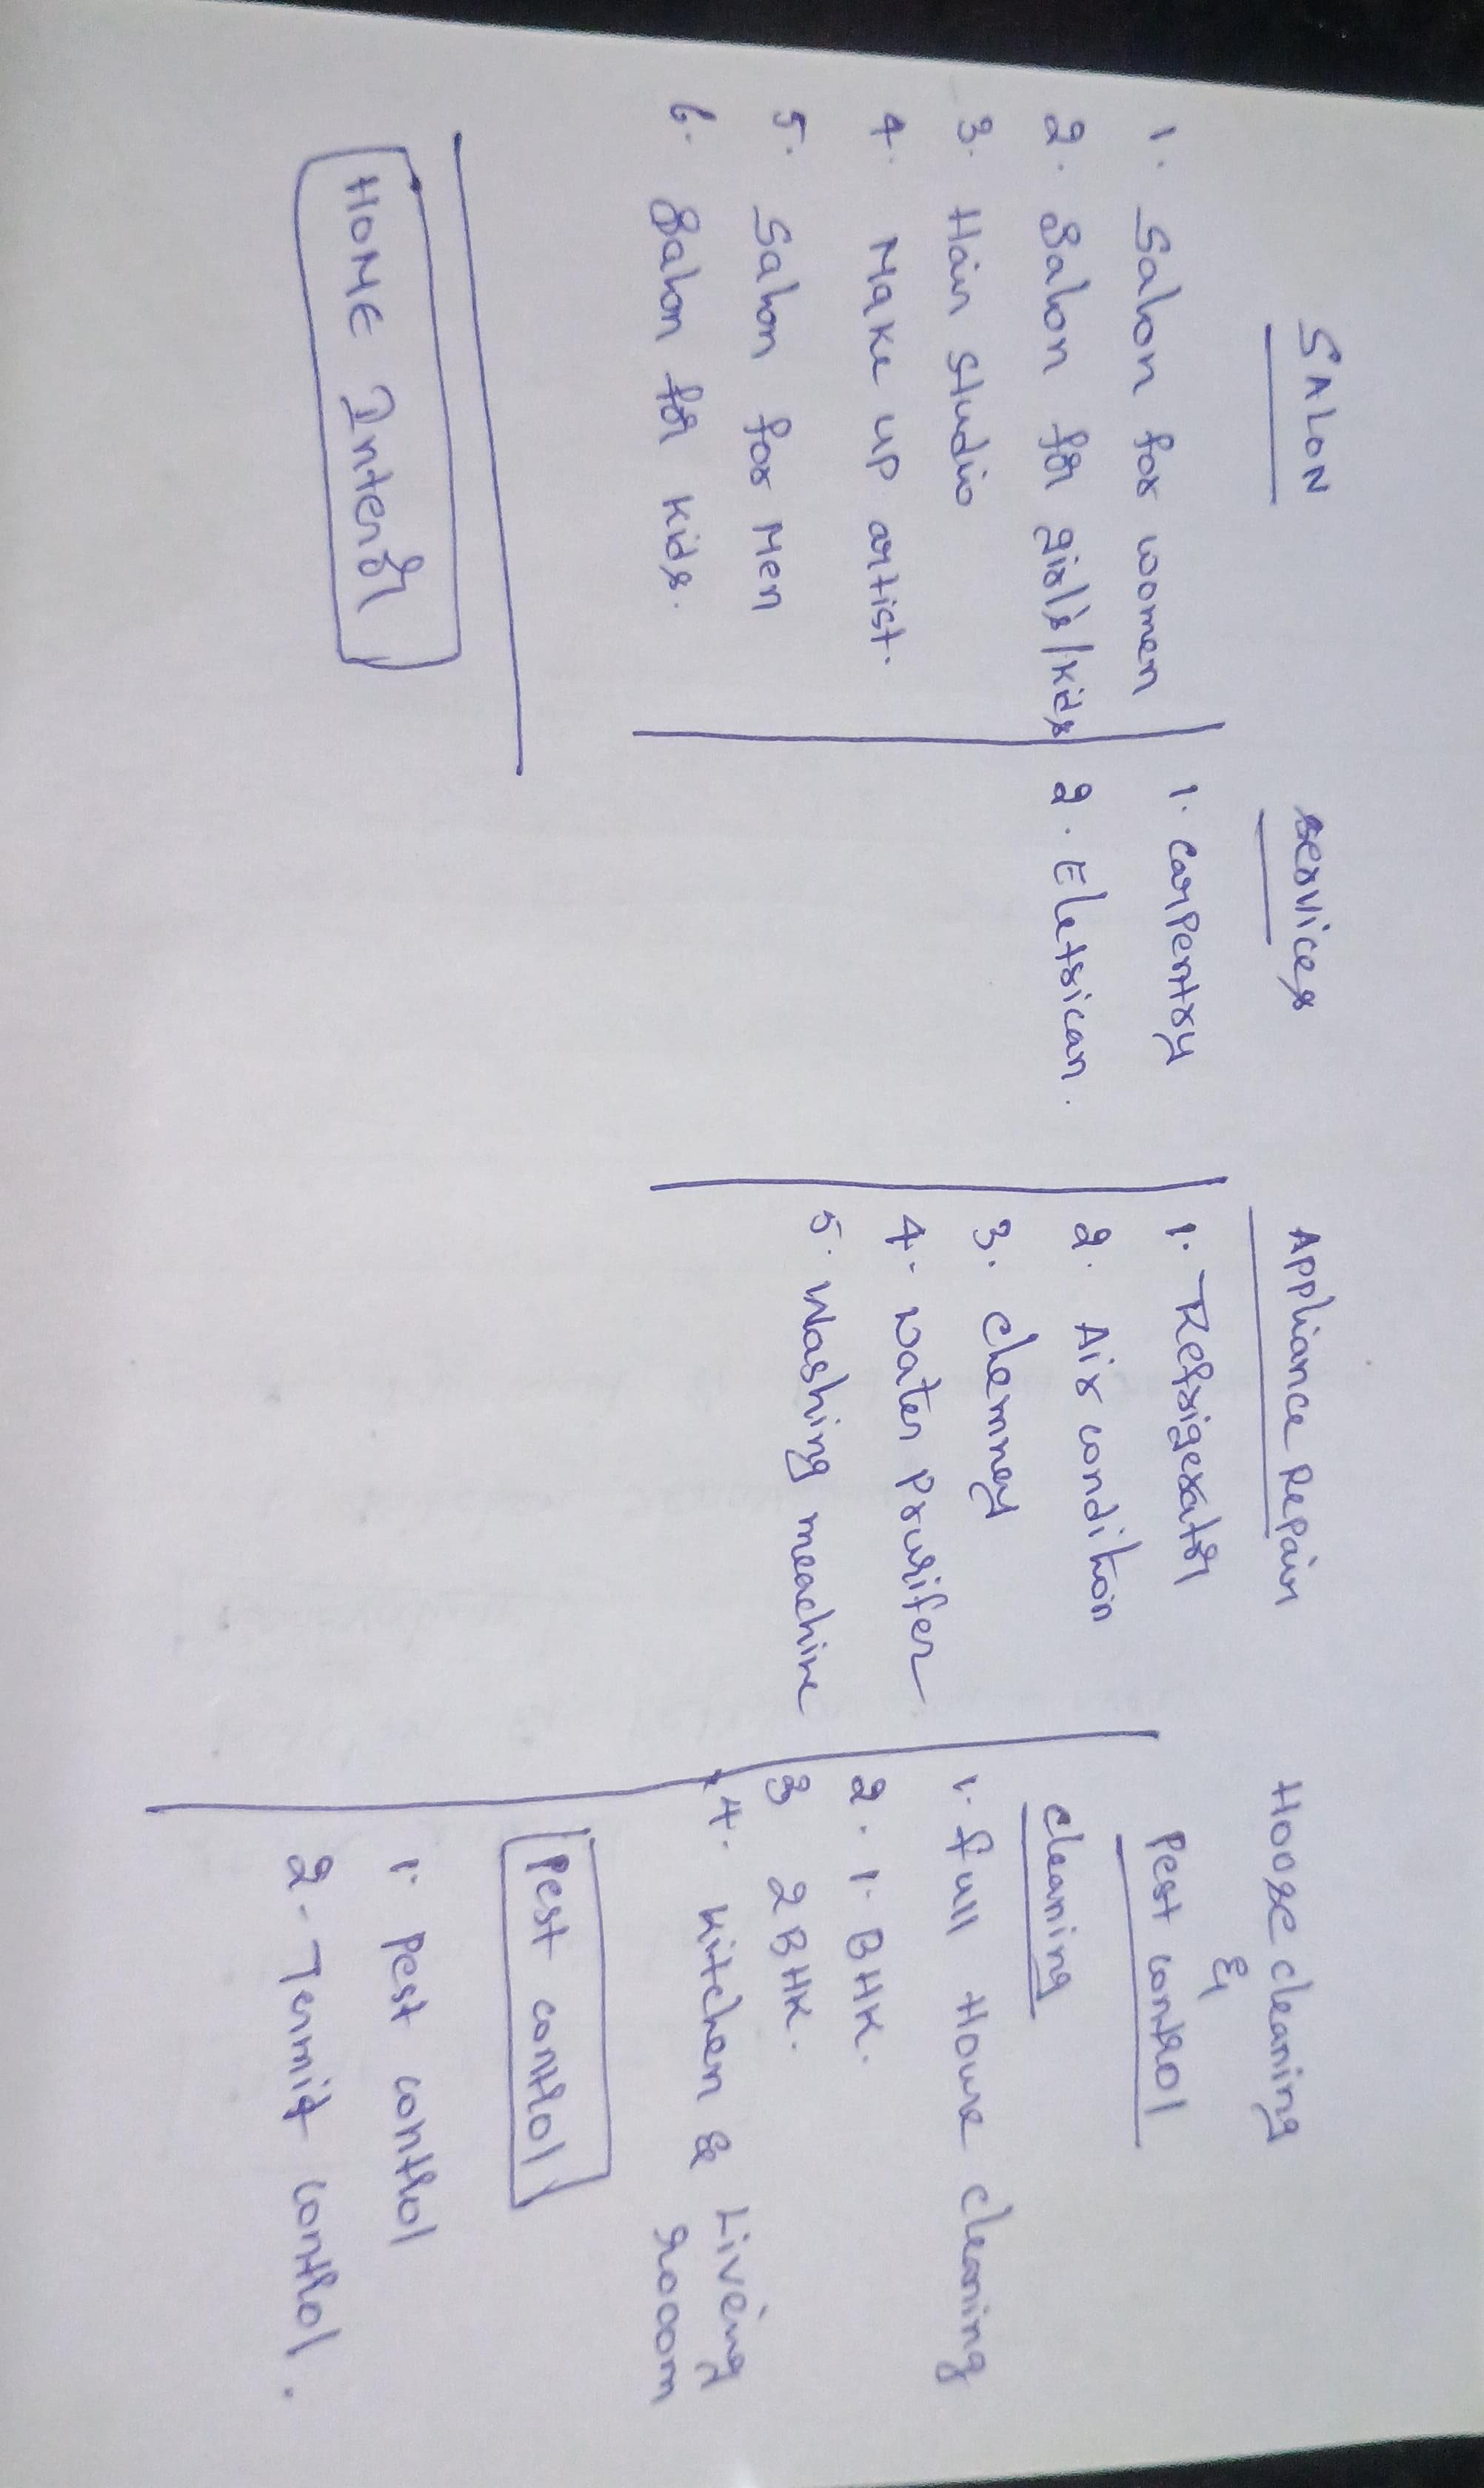 SALON
1. Salon for women
2. Salon for girls/kids
3. Hair studio
4. Make up artist.
5. Salon for Men
6. Salon for kids.
HOME Interior
services
1. carpentry
2. Eletrican.
Appliance Repair
1. Refrigerator
2. Air condition
3. chemney
4. water prurifer
5. Washing meachine
Hoose cleaning
&
Pest control
cleaning
1. full House cleaning
2. 1. BHK.
3 2BHK.
4. kitchen & Liveing
rooom
Pest control
1. pest control
2. Termit control.